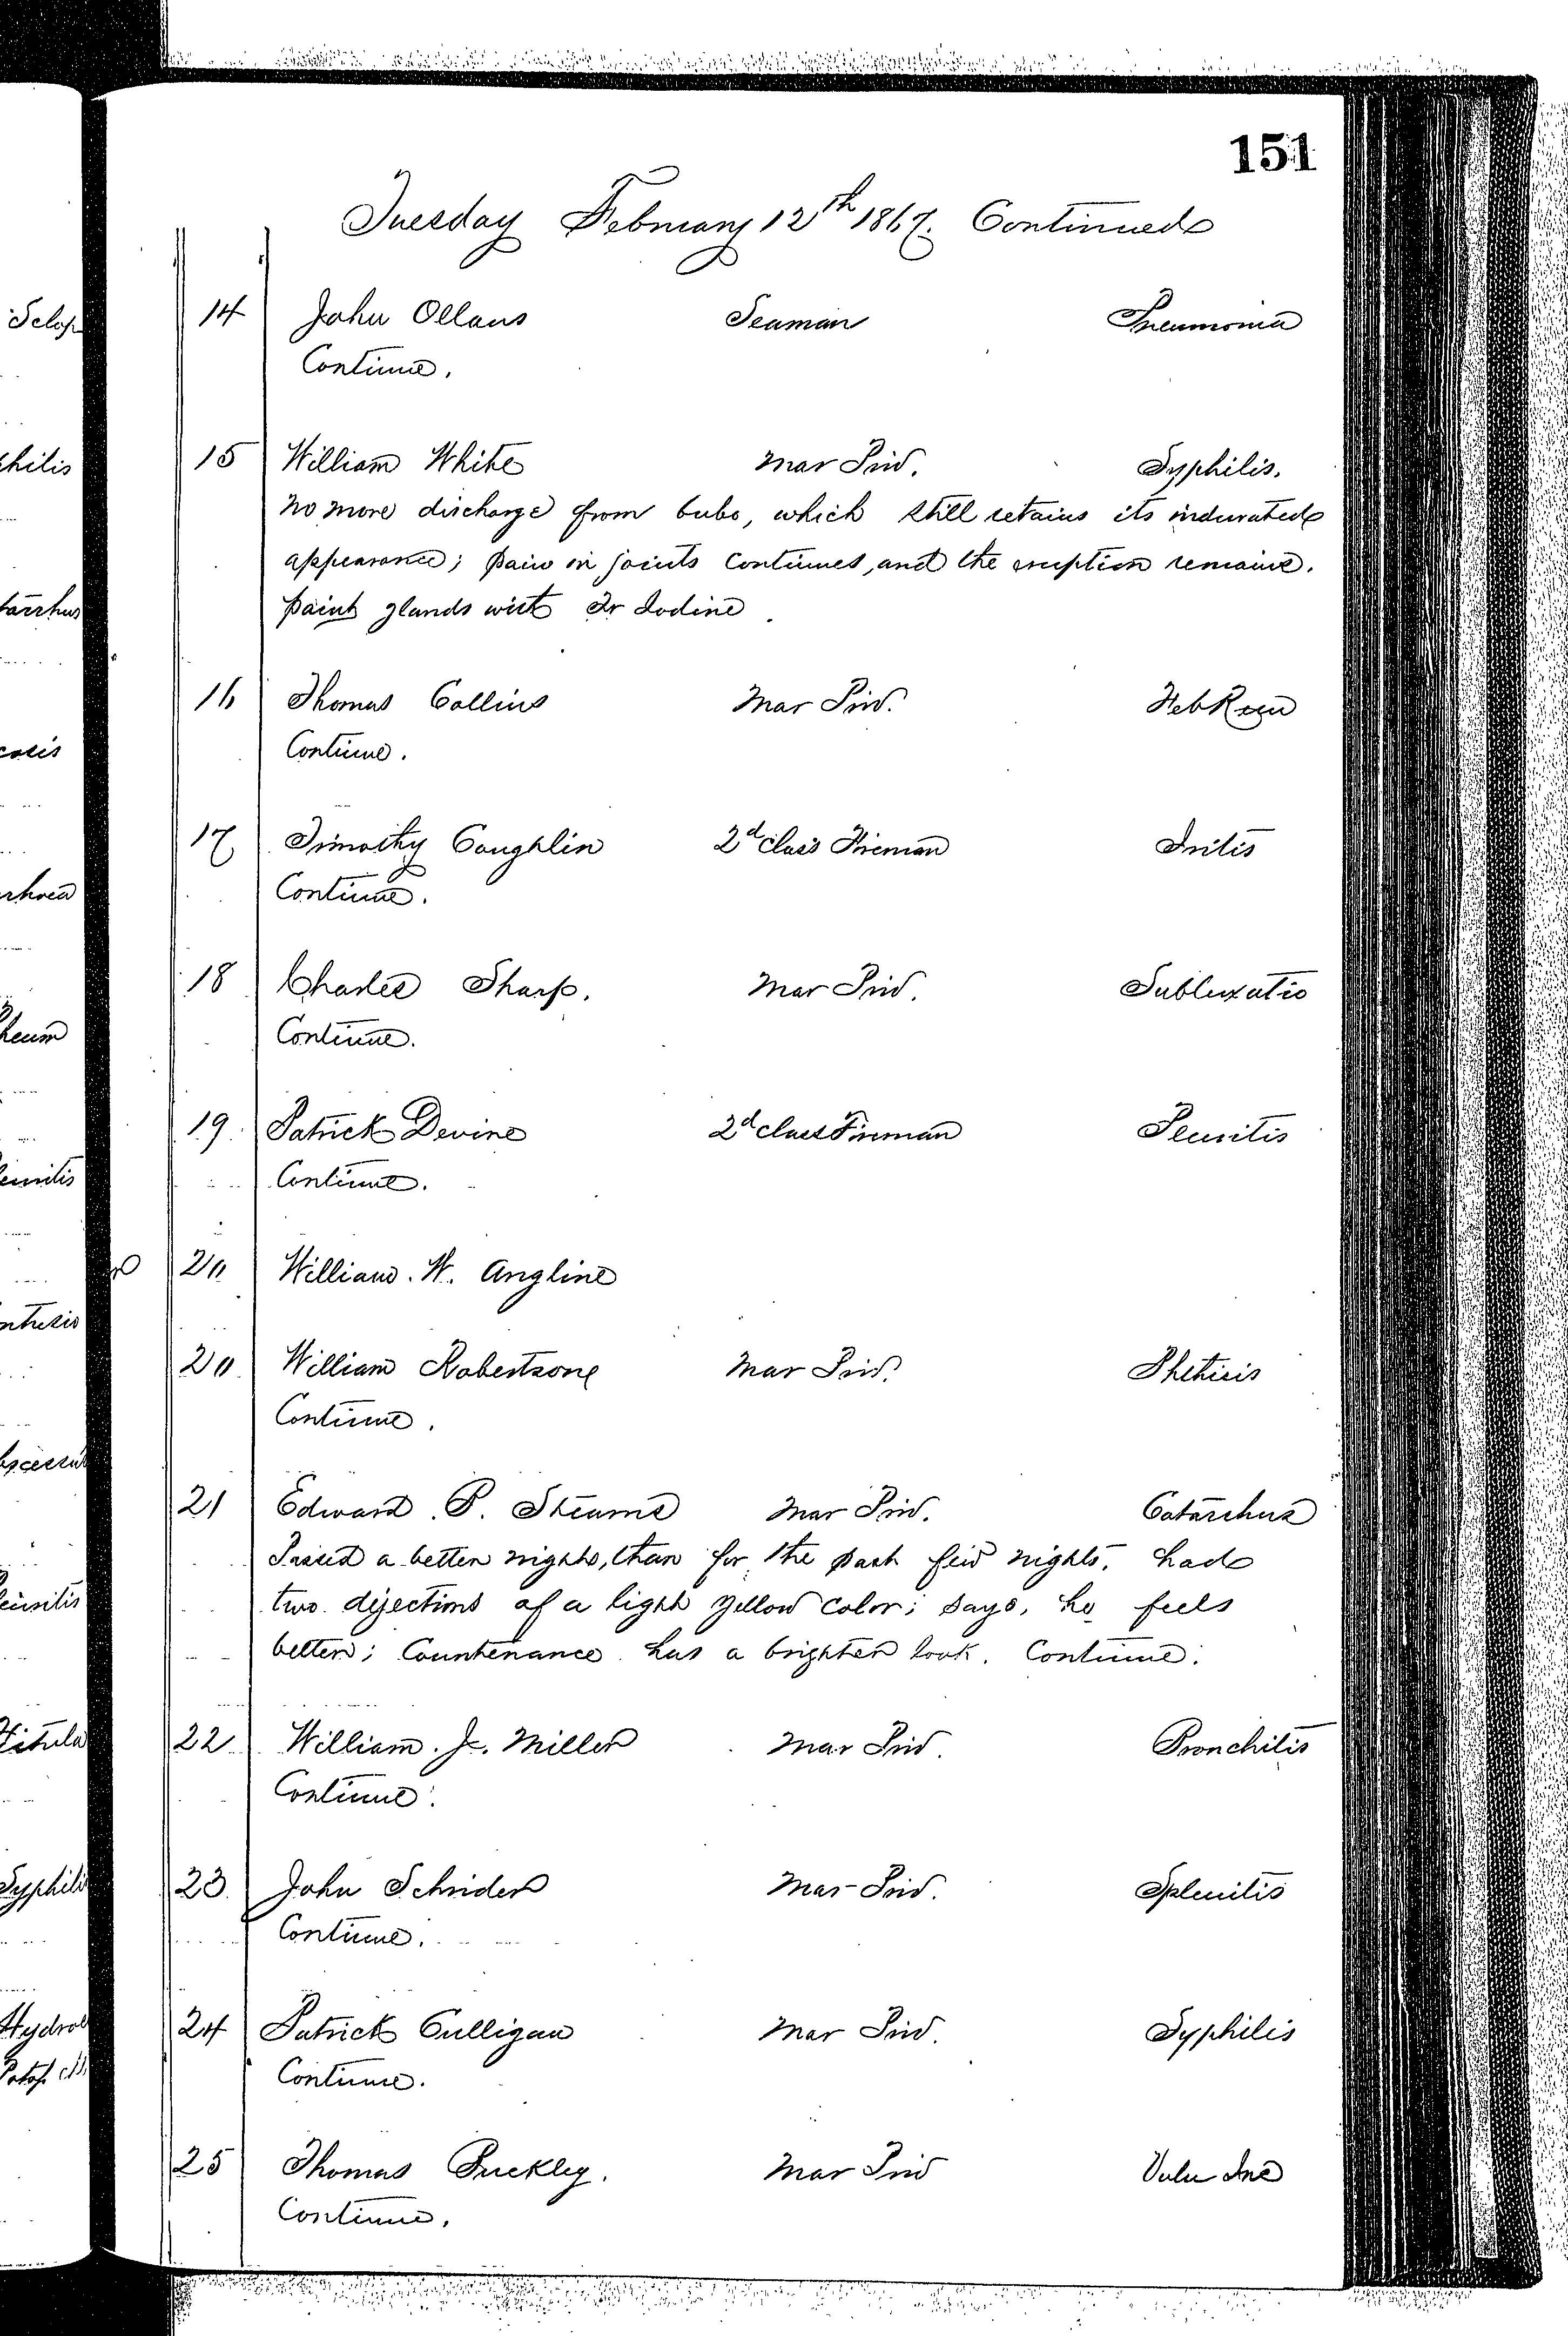 151
Tuesday February 12th 1867. Continued
14 John Ollaus Seaman Pneumonia
Continue.
15 William White Mar Priv. Syphilis.
No more discharge from bubo, which still retains its indurated
appearance; pain in joints continues, and the eruption remains.
paint glands with Tr Iodine
16 Thomas Collins Mar Priv. Feb Rem
Continue.
17 Timothy Coughlin 2d Class Fireman Iritis
Continue.
18 Charles Sharp. Mar Priv. Subluxatio
Continue.
19 Patrick Devine 2d Class Fireman Pleuritis
Continue.
20 William. W. Angline
20 William Robertson Mar Priv. Phthisis
Continue.
21 Edward. P. Stearns Mar Priv. Catarrhus
Passed a better night, than for the past few nights. had
two dejections of a light yellow color; says, he feels
better; Countenance has a brighter look. Continue.
22 William. J. Miller Mar Priv. Bronchitis
Continue.
23 John Schrider Mar Priv. Splenitis
Continue.
24 Patrick Culligan Mar Priv. Syphilis
Continue.
25 Thomas Buckley. Mar Priv Vuln Inc
Continue.